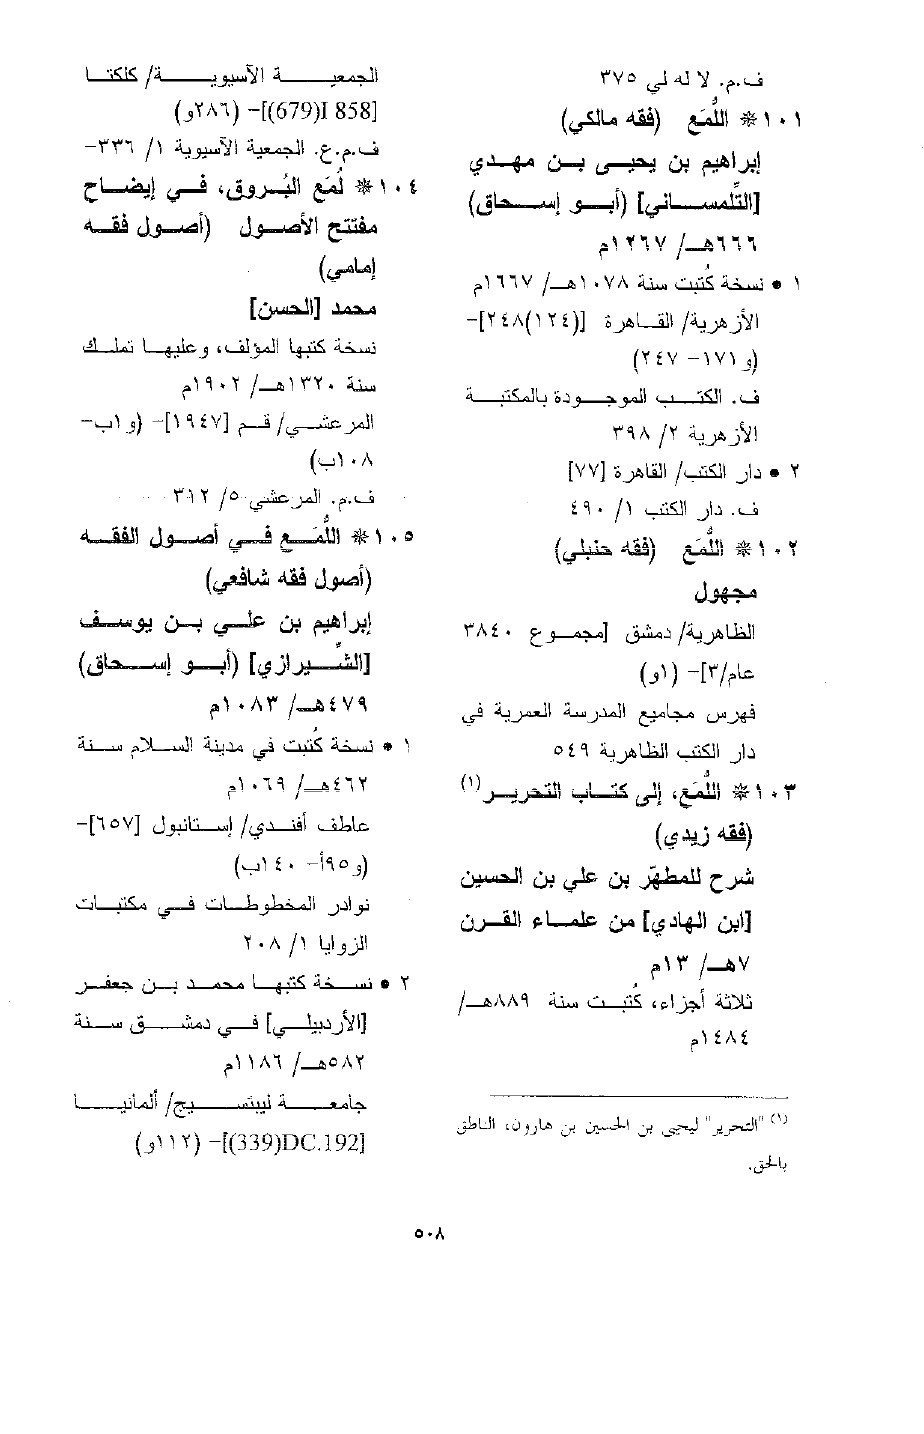 ف.م. لا له لي ٣٧٥
١٠١* اللُّمَع (فقه مالكي)
إبراهيم بن يحيى بن مهدي
[التِّلمساني] (أبو إسحاق)
٦٦٦هـ/ ١٢٦٧م
١ • نسخة كُتبت سنة ١٠٧٨هـ/ ١٦٦٧م
الأزهرية/ القاهرة [(١٢٤)٢٤٨]-
(و١٧١- ٢٤٧)
ف. الكتب الموجودة بالمكتبة
الأزهرية ٢/ ٣٩٨
٢ • دار الكتب/ القاهرة [٧٧]
ف. دار الكتب ١/ ٤٩٠
١٠٢* اللُّمَع (فقه حنبلي)
مجهول
الظاهرية/ دمشق [مجموع ٣٨٤٠
عام/٣]- (١و)
فهرس مجاميع المدرسة العمرية في
دار الكتب الظاهرية ٥٤٩
١٠٣* اللُّمَع، إلى كتاب التحرير(١)
(فقه زيدي)
شرح للمطهّر بن علي بن الحسين
[ابن الهادي] من علماء القرن
٧هـ/ ١٣م
ثلاثة أجزاء، كُتبت سنة ٨٨٩هـ/
١٤٨٤م
(١) "التحرير" ليحيى بن الحسين بن هارون، الناطق
بالحق.
الجمعية الآسيوية/ كلكتا
[(679)I 858]- (٢٨٦و)
ف.م.ع. الجمعية الآسيوية ١/ ٣٣٦-
١٠٤* لُمَع البُروق، في إيضاح
مفتتح الأصول (أصول فقه
إمامي)
محمد [الحسن]
نسخة كتبها المؤلف، وعليها تملك
سنة ١٣٢٠هـ/ ١٩٠٢م
المرعشي/ قم [١٩٤٧]- (و١ب-
١٠٨ب)
ف.م. المرعشي ٥/ ٣١٢
١٠٥* اللُّمَع في أصول الفقه
(أصول فقه شافعي)
إبراهيم بن علي بن يوسف
[الشِّيرازي] (أبو إسحاق)
٤٧٩هـ/ ١٠٨٣م
١ • نسخة كُتبت في مدينة السلام سنة
٤٦٢هـ/ ١٠٦٩م
عاطف أفندي/ إستانبول [٦٥٧]-
(و٩٥أ- ١٤٠ب)
نوادر المخطوطات في مكتبات
الزوايا ١/ ٢٠٨
٢ • نسخة كتبها محمد بن جعفر
[الأردبيلي] في دمشق سنة
٥٨٢هـ/ ١١٨٦م
جامعة ليبتسيج/ ألمانيا
[(339)DC.192]- (١١٢و)
٥٠٨